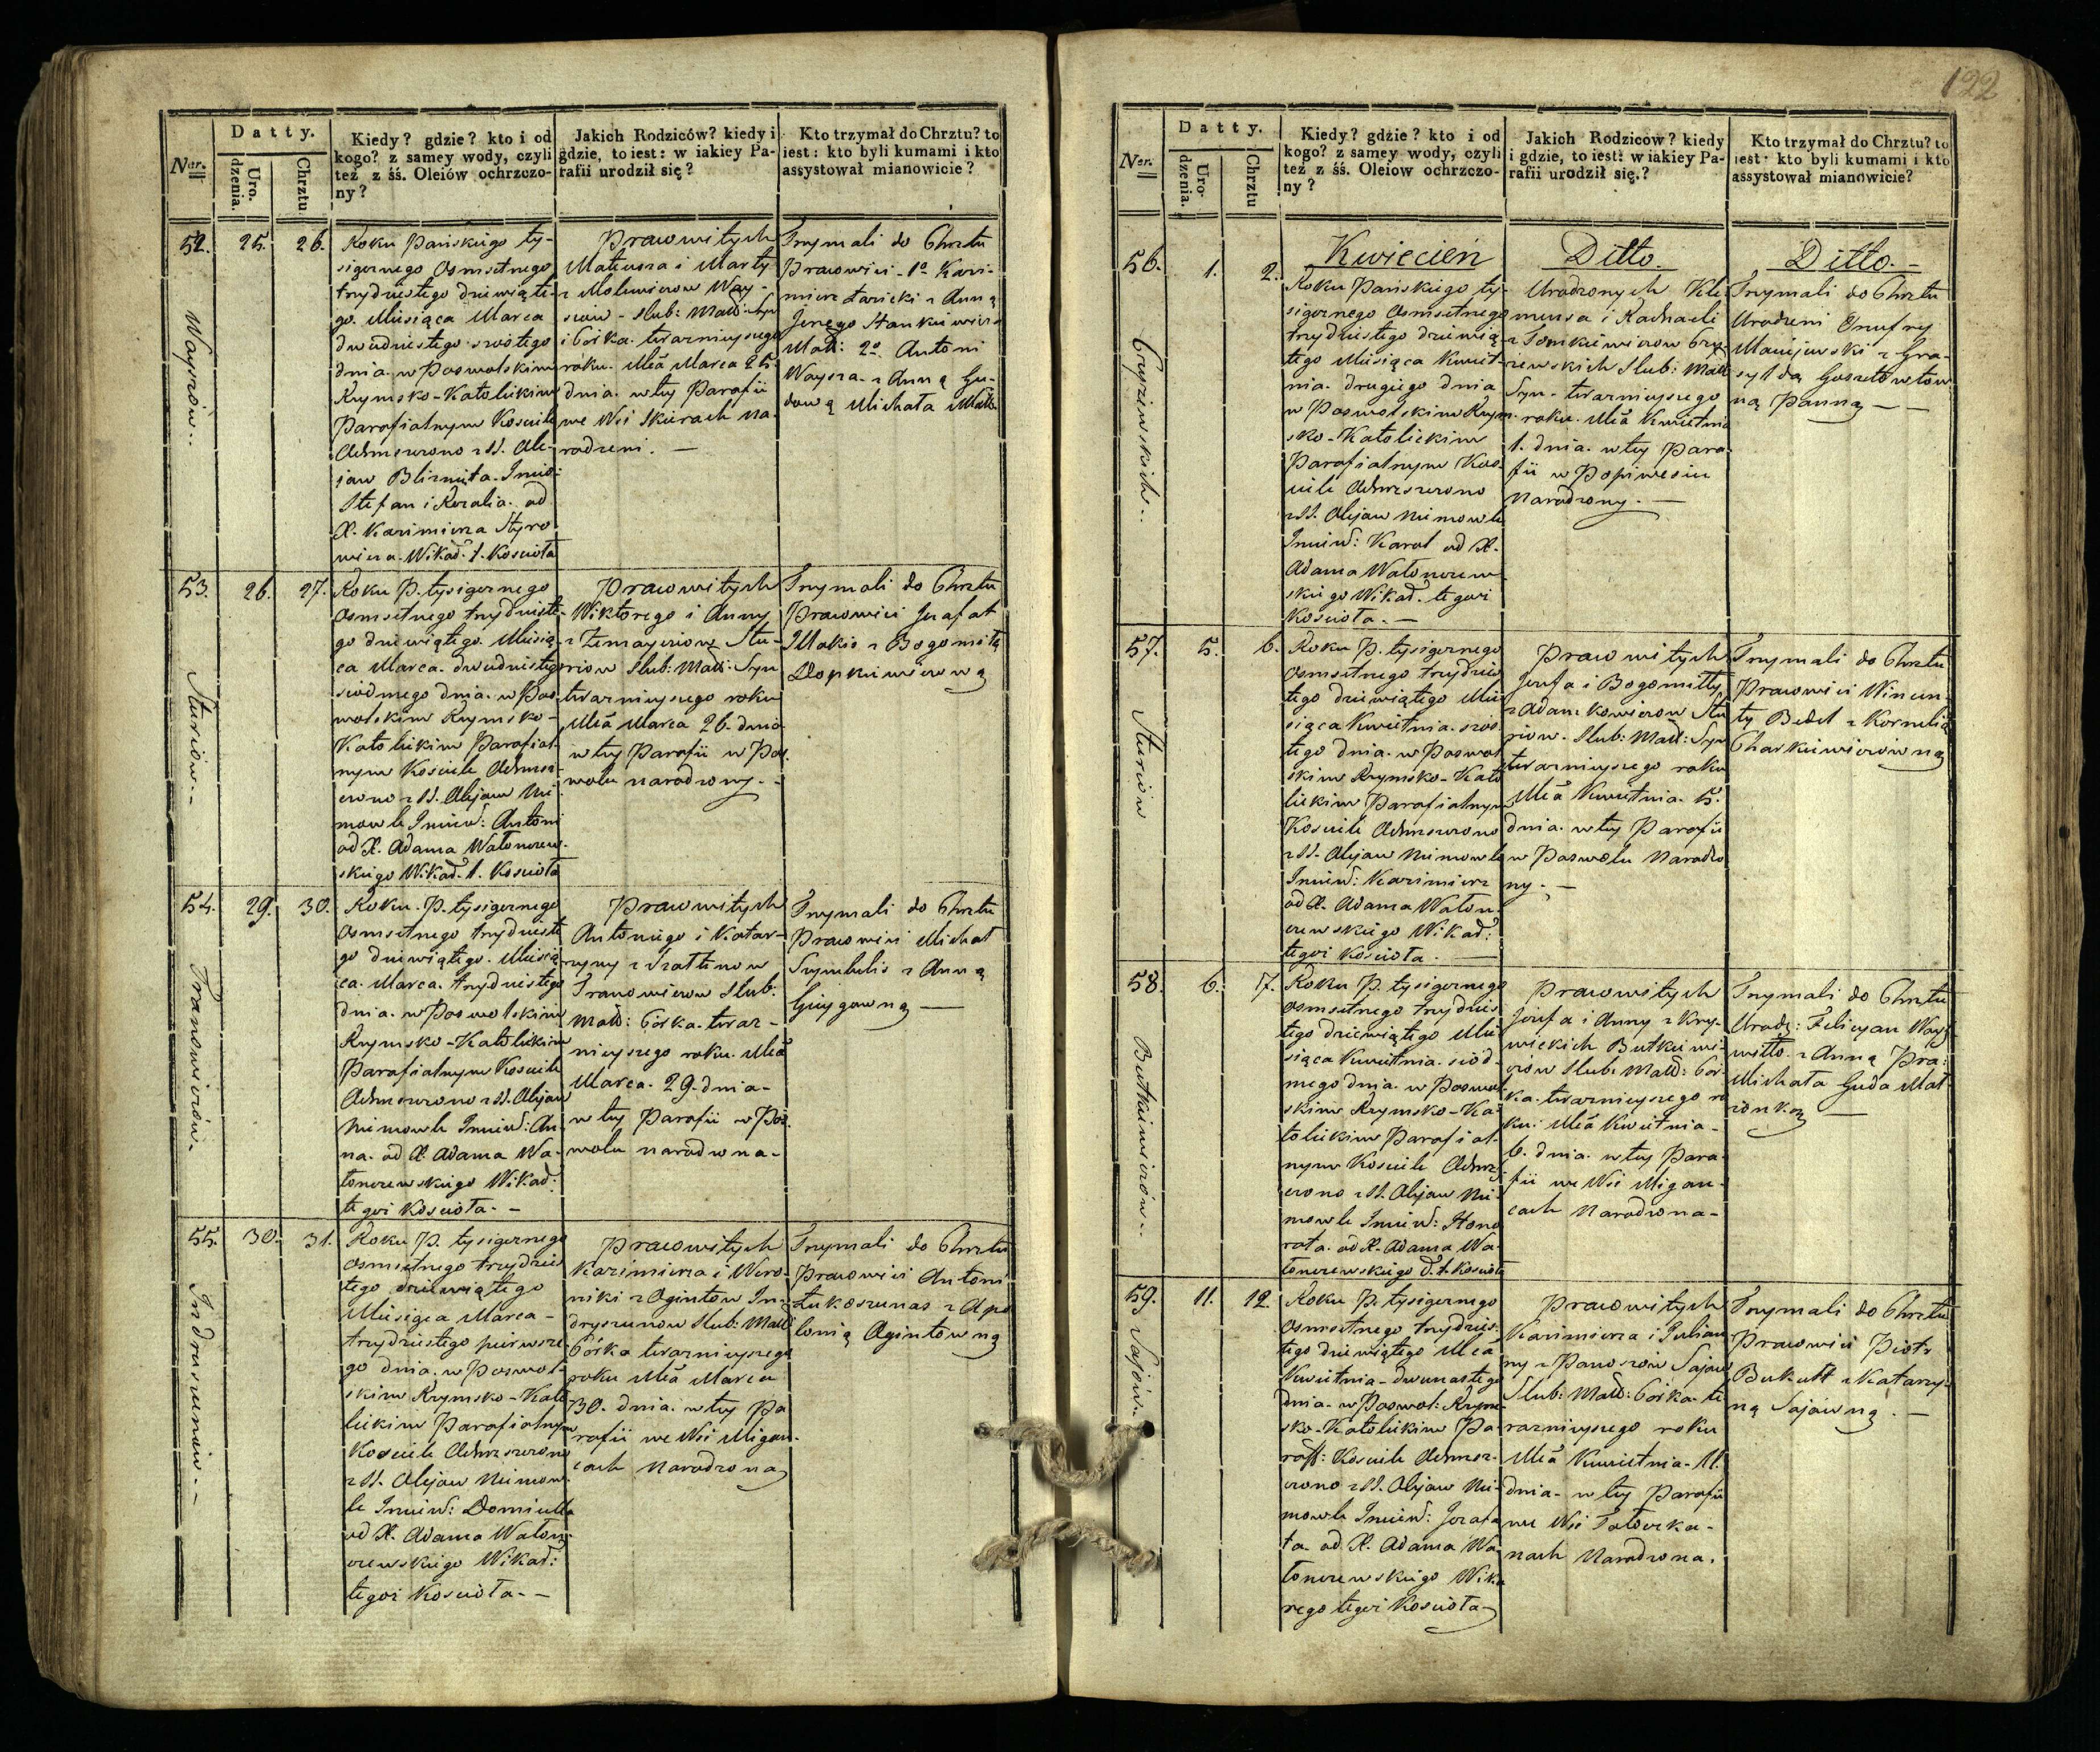 Ner.
Datty.
Uro. dzenia.
Chrztu
Kiedy? gdzie? kto i od
kogo? z samey wody, czyli
też z śś. Oleiów ochrzczo-
ny?
Jakich Rodziców? kiedy i
gdzie, to iest: w iakiey Pa-
rafii urodził się?
Kto trzymał do Chrztu? to
iest: kto byli kumami i kto
assystował mianowicie?
52.
25.
26.
Wayszów.
Roku Pańskiego ty-
siącznego Osmsetnego
trzydziestego dziewiąte-
go. Miesiąca Marca
dwudziestego szóstego
dnia w Poswolskim
Rzymsko-Katolickim
Parafialnym Kosciele
Ochrzczono z SS. Ole-
jow Bliznięta. Imio:
Stefan i Rozalia. od
X. Kazimierza Styro
wicza. Wikar. t. Kościoła
Prawowitych
Mateusza i Marty
z Way-
szow - Slub: Małż: Syn
i Córka. teraznieyszego
roku. Mca Marca 25.
dnia. w tey Parafii
we Wsi Skierach na-
rodzeni. —
Trzymali do Chrztu
Prawowici - 1o Kazi-
mierz Łasicki z Anną
Jerzego Stankiewicza
Małż: 2o Antoni
Waysza z Anną Gu-
dową Michała Małż.
53.
26.
27.
Sturiów. -
Roku P. tysiącznego
Osmsetnego trzydzieste-
go dziewiątego. Miesią-
ca Marca. dwudziestego
siódmego dnia. w Pos
wolskim Rzymsko-
Katolickim Parafial-
nym Kosciele Ochrz-
czono z SS. Olejow Nie
mowle Imiew: Antoni
od X. Adama Wałoncew-
skiego Wikar. t. Kościoła
Prawowitych
Wiktorego i Anny
z Stu-
riow Slub: Małż: Syn
teraznieyszego roku
Mca Marca 26. dnia
w tey Parafii w Pos
wolu narodzony. -
Trzymali do Chrztu
Prawowici Jozafat
Mokis z Bogomiłą
Dopkiewiczową
54.
29.
30.
Franowiczów. -
Roku. P. tysiącznego
Osmsetnego trzydzieste
go dziewiątego. Miesią
ca. Marca. trzydziestego
dnia. w Poswolskim
Rzymsko-Katolickim
Parafialnym Kosciele
Ochrzczono z SS. Olejow
Niemowle Imiew: An-
na. od X. Adama Wa-
łoncewskiego Wikar:
tegoż Kościoła. -
Prawowitych
Antoniego i Katar-
zyny z
Franowiczow Slub:
Małż: Córka. teraz-
nieyszego roku. Mca
Marca. 29. dnia-
w tey Parafii w Pos.
wolu narodzona-
Trzymali do Chrztu
Prawowici Michał
Szymbelis z Anną
Giegzowną —
55.
30.
31.
Indruszunów. -
Roku P. tysiącznego
Osmsetnego trzydzies
tego dziewiątego
Miesiąca Marca -
trzydziestego pierwsze-
go dnia. w Poswol-
skim Rzymsko-Kato
lickim Parafialnym
Kosciele Ochrzczono
z SS. Olejow Niemow
le Imiew: Domicella
od X. Adama Wałon-
cewskiego Wikar:
tegoż Kościoła. -
Prawowitych
Kazimierza i Wero-
niki z Agintow In-
dryszunow Slub: Małż
Córka teraznieyszego
roku Mca Marca
30. dnia. w tey Pa
rafii we Wsi Migon-
iach Narodzona
Trzymali do Chrztu
Prawowici Antoni
Łukoszunas z Apo
lonią Agintowną
122
Ner.
Datty.
Uro- dzenia.
Chrztu
Kiedy? gdzie? kto i od
kogo? z samey wody, czyli
też z śś. Oleiow ochrzczo-
ny?
Jakich Rodziców? kiedy
i gdzie, to iest: w iakiey Pa-
rafii urodził się.?
Kto trzymał do Chrztu? to
iest: kto byli kumami i kto
assystował mianowicie?
Kwiecień
Ditto.
Ditto.-
56.
1.
2.
Roku Pańskiego ty-
siącznego Osmsetnego
trzydziestego dziewią
tego Miesiąca Kwiet-
nia. drugiego dnia
w Poswolskim Rzym-
sko-Katolickim
Parafialnym Kos-
ciele Ochrzczono
z SS. Olejow Niemowle
Imiew: Karol od X.
Adama Wałoncew-
skiego Wikar. tegoż
Kościoła. -
Urodzonych Kle
mensa i Racheli
z Tomkiewiczow
Slub: Małż
Syn - teraznieyszego
roku. Mca Kwietnia
1. dnia. w tey Para-
fii w Popiwesiu
Narodzony. —
Trzymali do Chrztu
Urodzeni Onufry
Maciejewski z Gra-
syldą
ną Panną — —
57.
5.
6.
Sturiów
Roku P. tysiącznego
Osmsetnego trzydzies
tego dziewiątego Mie
siąca Kwietnia. szos
tego dnia. w Poswol
skim Rzymsko-Kato
lickim Parafialnym
Kosciele Ochrzczono
z SS. Olejow Niemowle
Imiew: Kazimierz
od X. Adama Wałon-
cewskiego Wikar:
tegoż Kościoła. —
Prawowitych
Jozefa i Bogomiłły
z Adamkowiczow Stu
riow. Slub: Małż: Syn
teraznieyszego roku
Mca Kwietnia. 5.
dnia. w tey Parafii
w Poswolu Narodzo
ny. —
Trzymali do Chrztu
Prawowici Wincen-
ty Bedel z Kornelią
Charkiewiczowną
58.
6.
7.
Butkiewiczów. -
Roku P. tysiącznego
Osmsetnego trzydzies
tego dziewiątego Mie
siąca Kwietnia. siód-
mego dnia. w Poswol
skim Rzymsko-Ka-
tolickim Parafial-
nym Kosciele Ochrz
czono z SS. Olejow Nie
mowle Imiew: Hono
rata. od X. Adama Wa
łoncewskiego W. t. Kościoła
Prawowitych
Jozefa i Anny z Krzy-
wickich Butkiewi-
czów Slub: Małż: Cór-
ka. teraznieyszego ro
ku: Mca Kwietnia -
6. dnia. w tey Para-
fii we Wsi Migon-
cach Narodzona-
Trzymali do Chrztu
Urodz: Felicyan Way
wiłło. z Anną Pra:
Michała Guda Mał-
żonką —
59.
11.
12.
Sajów. -
Roku P. tysiącznego
Osmsetnego trzydzies-
tego dziewiątego Mca
Kwietnia - dwunastego
dnia - w Poswol: Rzym-
sko-Katolickim Pa
raff: Kosciele Ochrz-
czono z SS. Olejow Nie-
mowle Imiew: Jozafa
ta od X. Adama Wa
łoncewskiego Wika
rego tegoż Kościoła
Prawowitych
Kazimierza i Julian
ny z Panoszow Sajow
Slub: Małż: Córka. te
raznieyszego roku
Mca Kwietnia - 11.
dnia - w tey Parafii
we Wsi Tatorka-
nach Narodzona.
Trzymali do Chrztu
Prawowici Piotr
Bukatt z Katarzy-
ną Sajówną. —